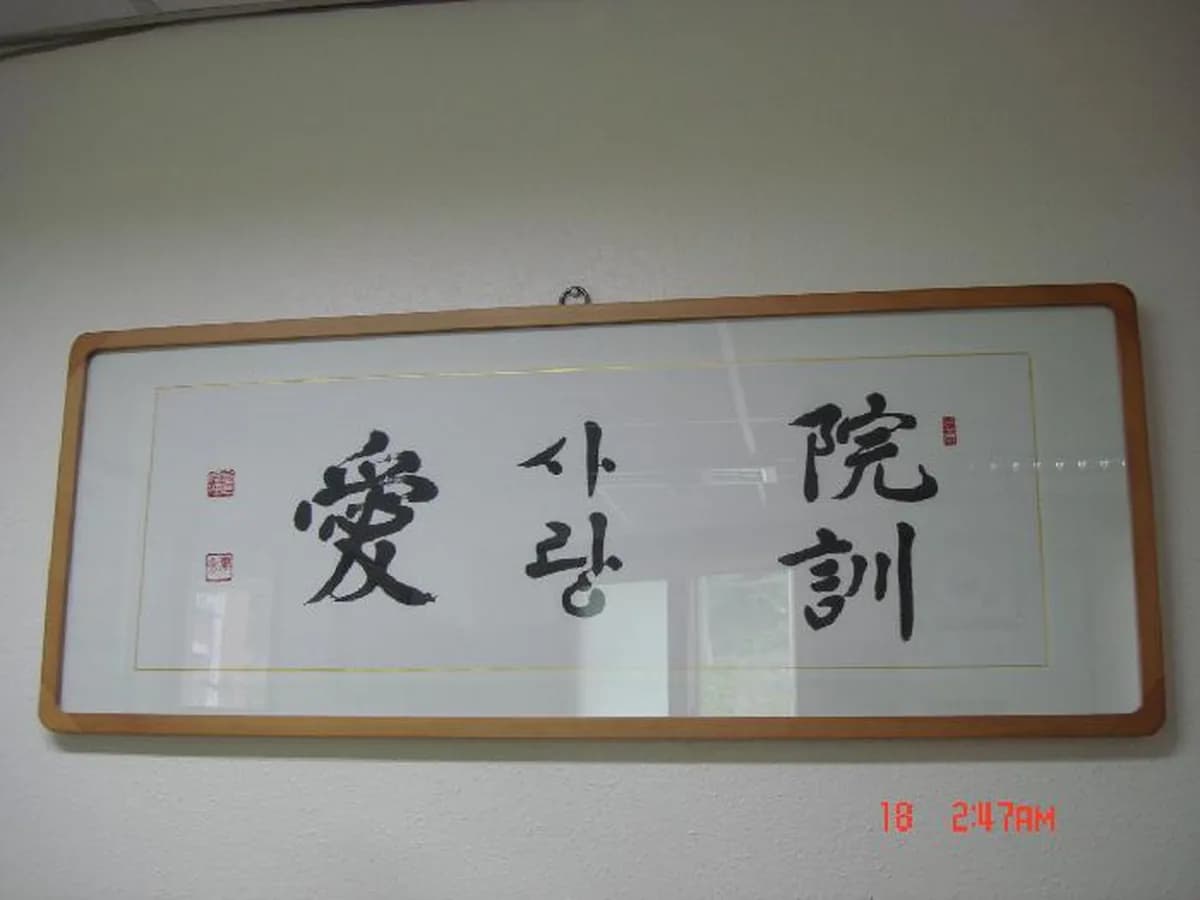 院訓
사랑
愛
18 2:47AM